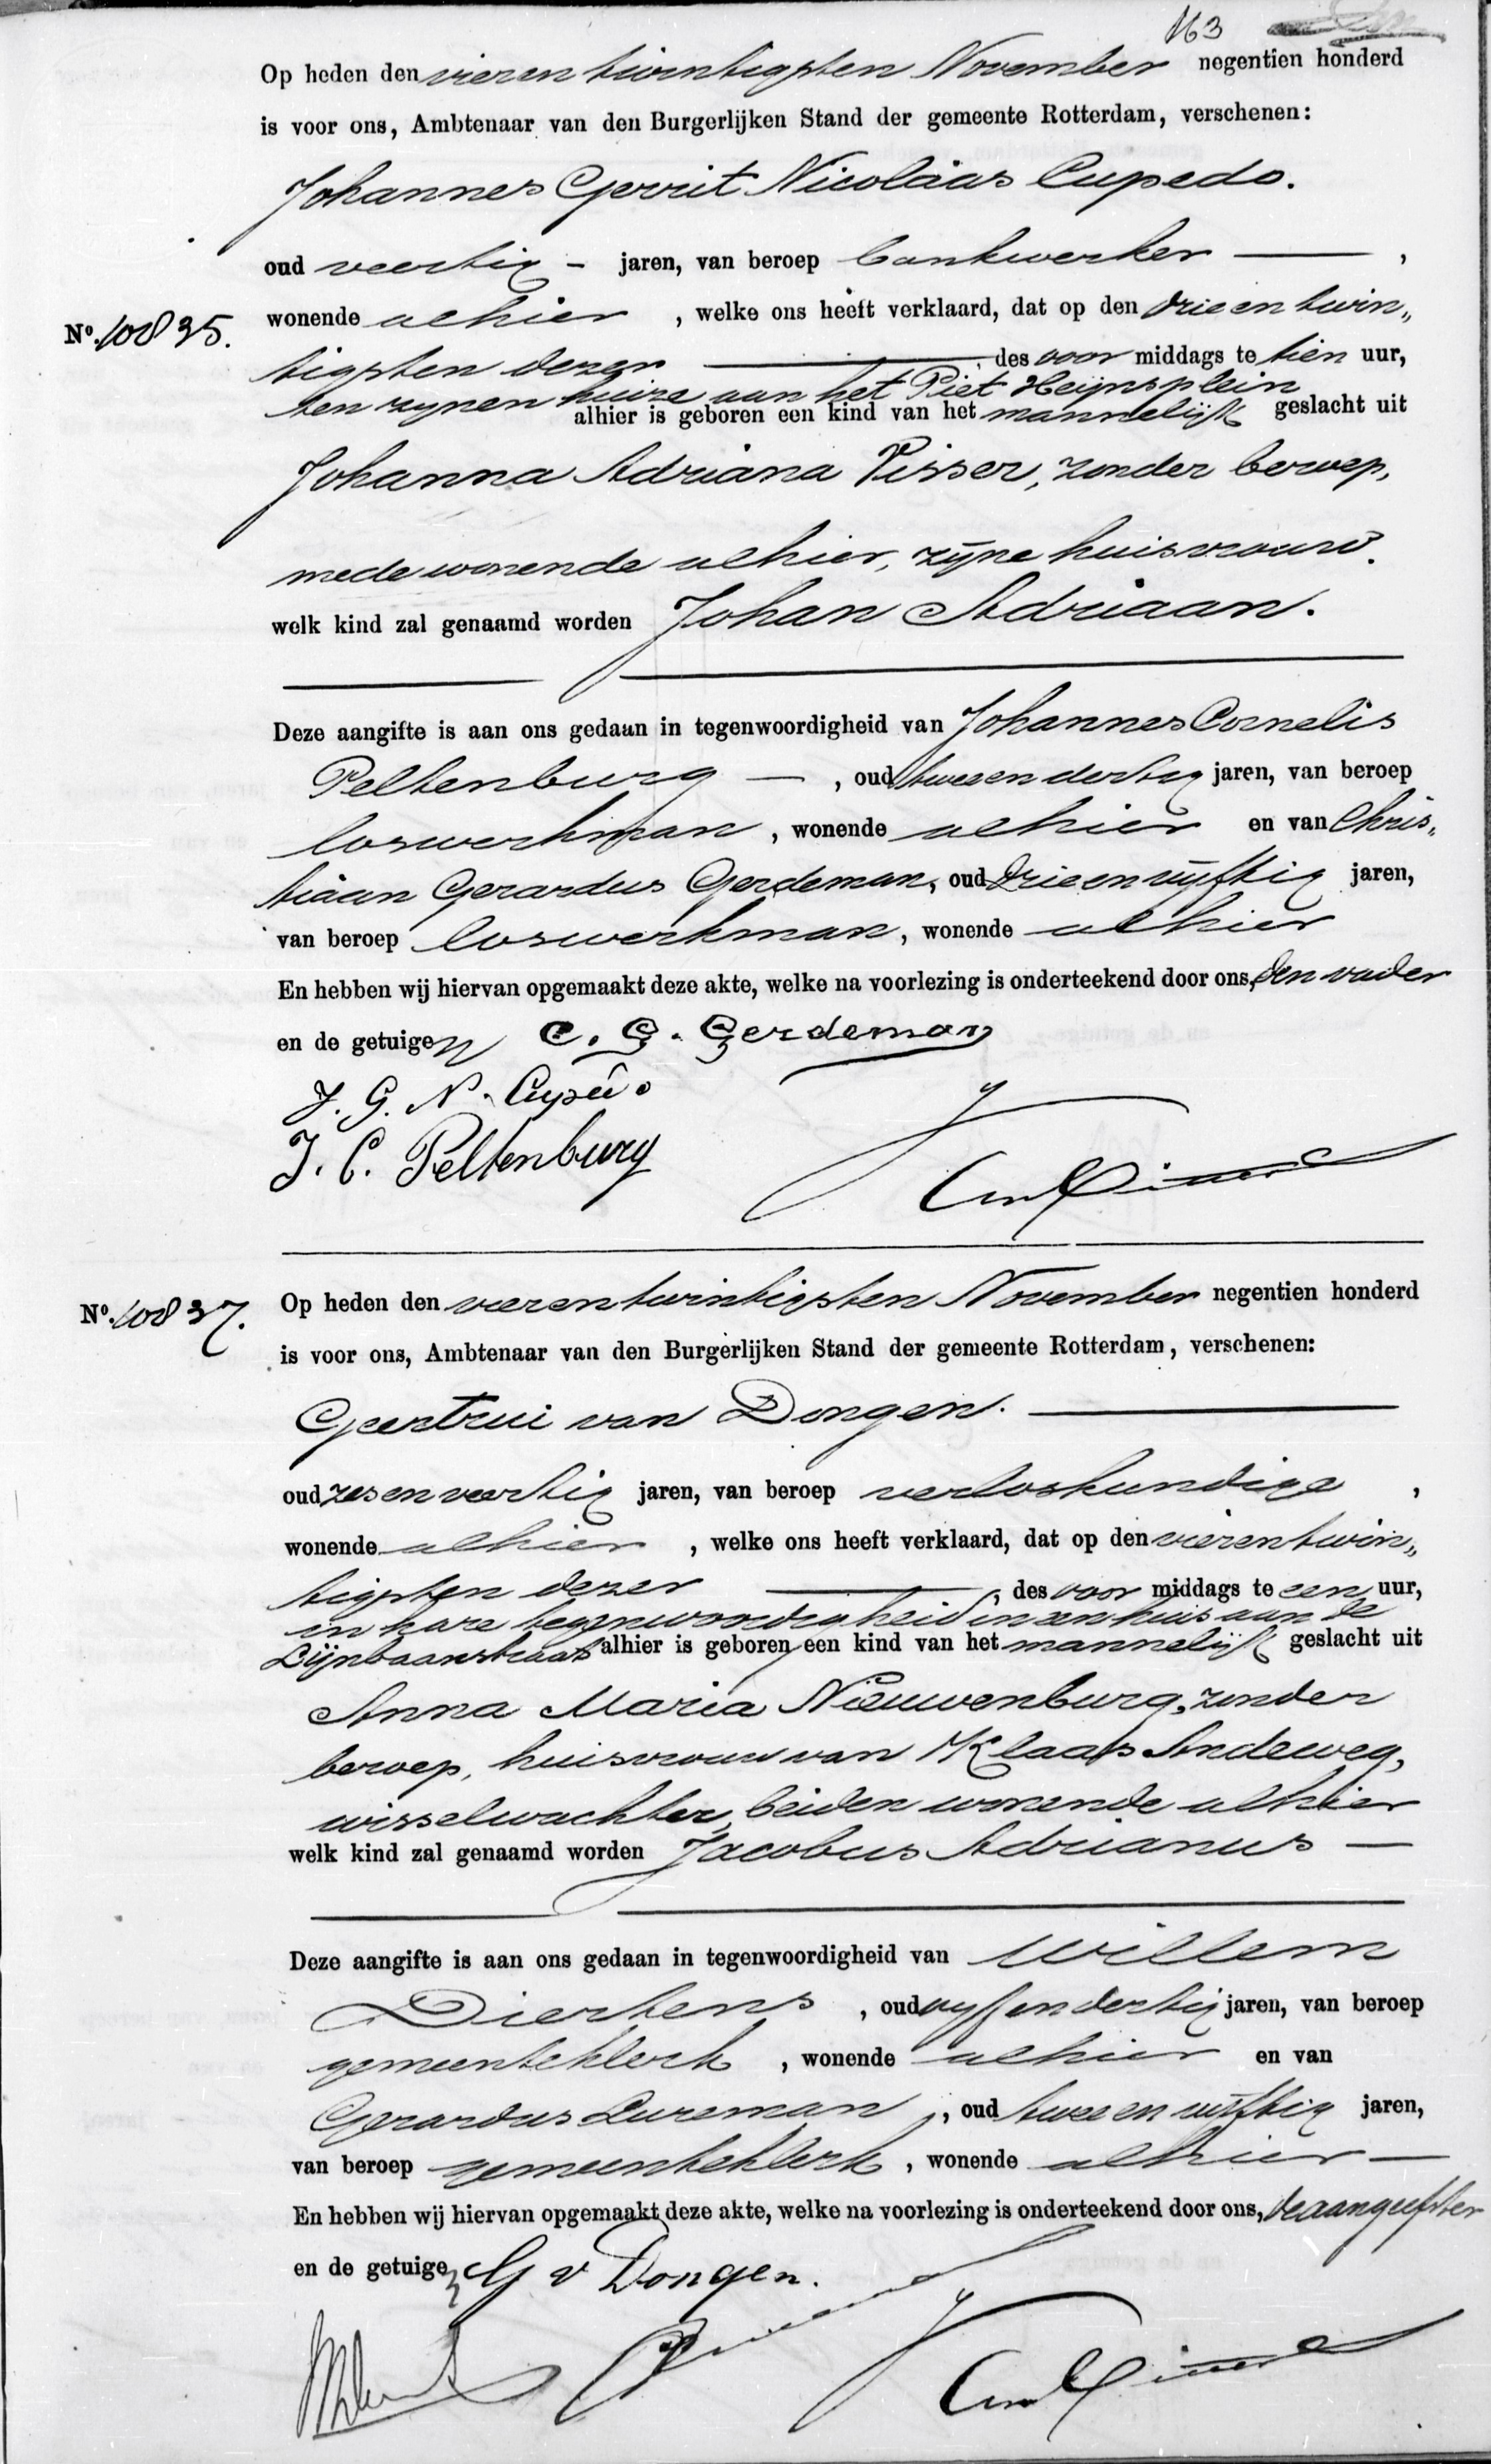 163
Op heden den vieren twintigsten November negentien honderd
is voor ons, Ambtenaar van den Burgerlijken Stand der gemeente Rotterdam, verschenen:
Johannes Gerrit Nicolaas Cupedo.
oud veertig - jaren, van beroep bankwerker ,
No. 10835. wonende alhier , welke ons heeft verklaard, dat op den drieen twin„
tigsten dezer , des voor middags te tien uur,
ten zynen huize aan het Piet Heijnsplein
alhier is geboren een kind van het mannelijk geslacht uit
Johanna Adriana Visser, zonder beroep,
mede wonende alhier, zijne huisvrouw.
welk kind zal genaamd worden Johan Adriaan.
Deze aangifte is aan ons gedaan in tegenwoordigheid van Johannes Cornelis
Peltenburg — , oud tweeendertig jaren, van beroep
loswerkman , wonende alhier en van Chris„
tiaan Gerardus Gerdeman, oud drieenvijftig jaren,
van beroep loswerkman, wonende alhier
En hebben wij hiervan opgemaakt deze akte, welke na voorlezing is onderteekend door ons, den vader
en de getuigen C. G. Gerdeman
J. G. N. Cupedo
J. C. Peltenburg
No. 10837. Op heden den vierentwintigsten November negentien honderd
is voor ons, Ambtenaar van den Burgerlijken Stand der gemeente Rotterdam, verschenen:
Geertrui van Dongen.
oud zesenveertig jaren, van beroep verloskundige ,
wonende alhier , welke ons heeft verklaard, dat op den vierentwin„
tigsten dezer , des voor middags te een uur,
in hare tegenwoordigheid in een huis aan de
Lijnbaanstraat alhier is geboren een kind van het mannelijk geslacht uit
Anna Maria Nieuwenburg, zonder
beroep, huisvrouw van Klaas Andeweg,
wisselwachter, beiden wonende alhier
welk kind zal genaamd worden Jacobus Adrianus —
Deze aangifte is aan ons gedaan in tegenwoordigheid van Willem
Diertens , oud vyfendertig jaren, van beroep
gemeenteklerk , wonende alhier en van
Gerardus Lureman , oud tweeenvijftig jaren,
van beroep gemeenteklerk , wonende alhier —
En hebben wij hiervan opgemaakt deze akte, welke na voorlezing is onderteekend door ons, de aangeefster
en de getuigen G v Dongen.